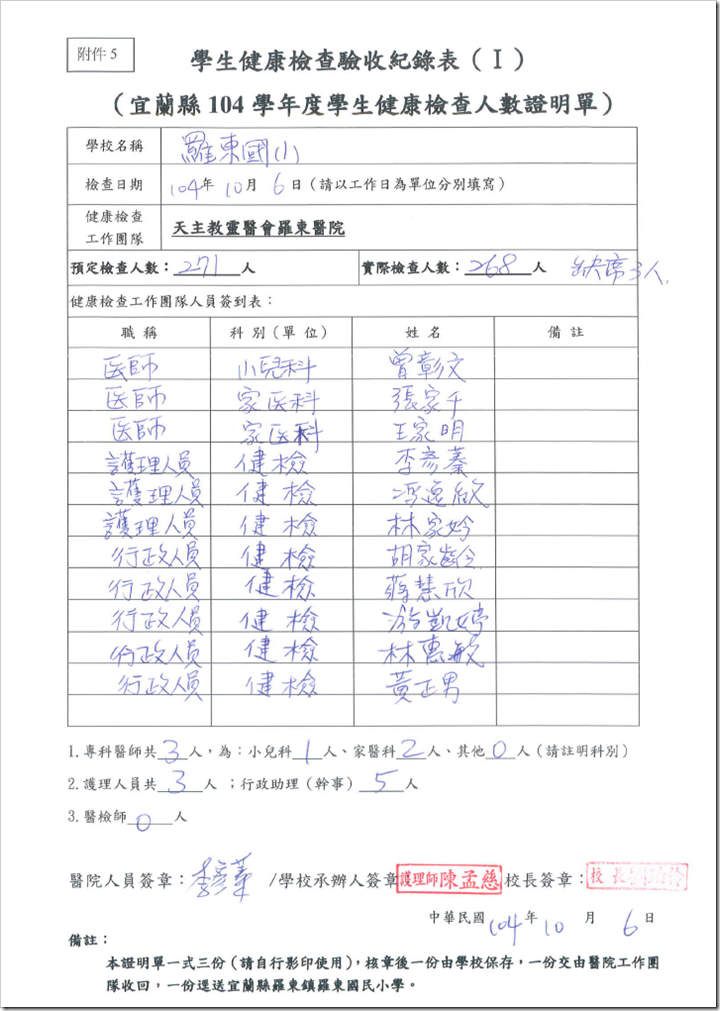 附件 5
學生健康檢查驗收紀錄表（Ⅰ）
（宜蘭縣 104 學年度學生健康檢查人數證明單）
學校名稱 羅東國小
檢查日期 104年 10月 6日（請以工作日為單位分別填寫）
健康檢查
工作團隊 天主教靈醫會羅東醫院
預定檢查人數：271人 實際檢查人數：268人 缺席3人.
健康檢查工作團隊人員簽到表：
職稱 科別（單位） 姓名 備註
医師 小兒科 曾彰文
医師 家医科 張家千
医師 家医科 王家明
護理人員 健檢 李彥蓁
護理人員 健檢
護理人員 健檢 林家妗
行政人員 健檢 胡家齡
行政人員 健檢 蔣慧欣
行政人員 健檢 游凱婷
行政人員 健檢 林惠敏
行政人員 健檢 黃正男
1.專科醫師共3人，為：小兒科1人、家醫科2人、其他0人（請註明科別）
2.護理人員共3人；行政助理（幹事）5人
3.醫檢師0人
醫院人員簽章：李彥蓁 /學校承辦人簽章 護理師陳孟慈 校長簽章： 校長
中華民國 104年 10月 6日
備註：
本證明單一式三份（請自行影印使用），核章後一份由學校保存，一份交由醫院工作團
隊收回，一份逕送宜蘭縣羅東鎮羅東國民小學。